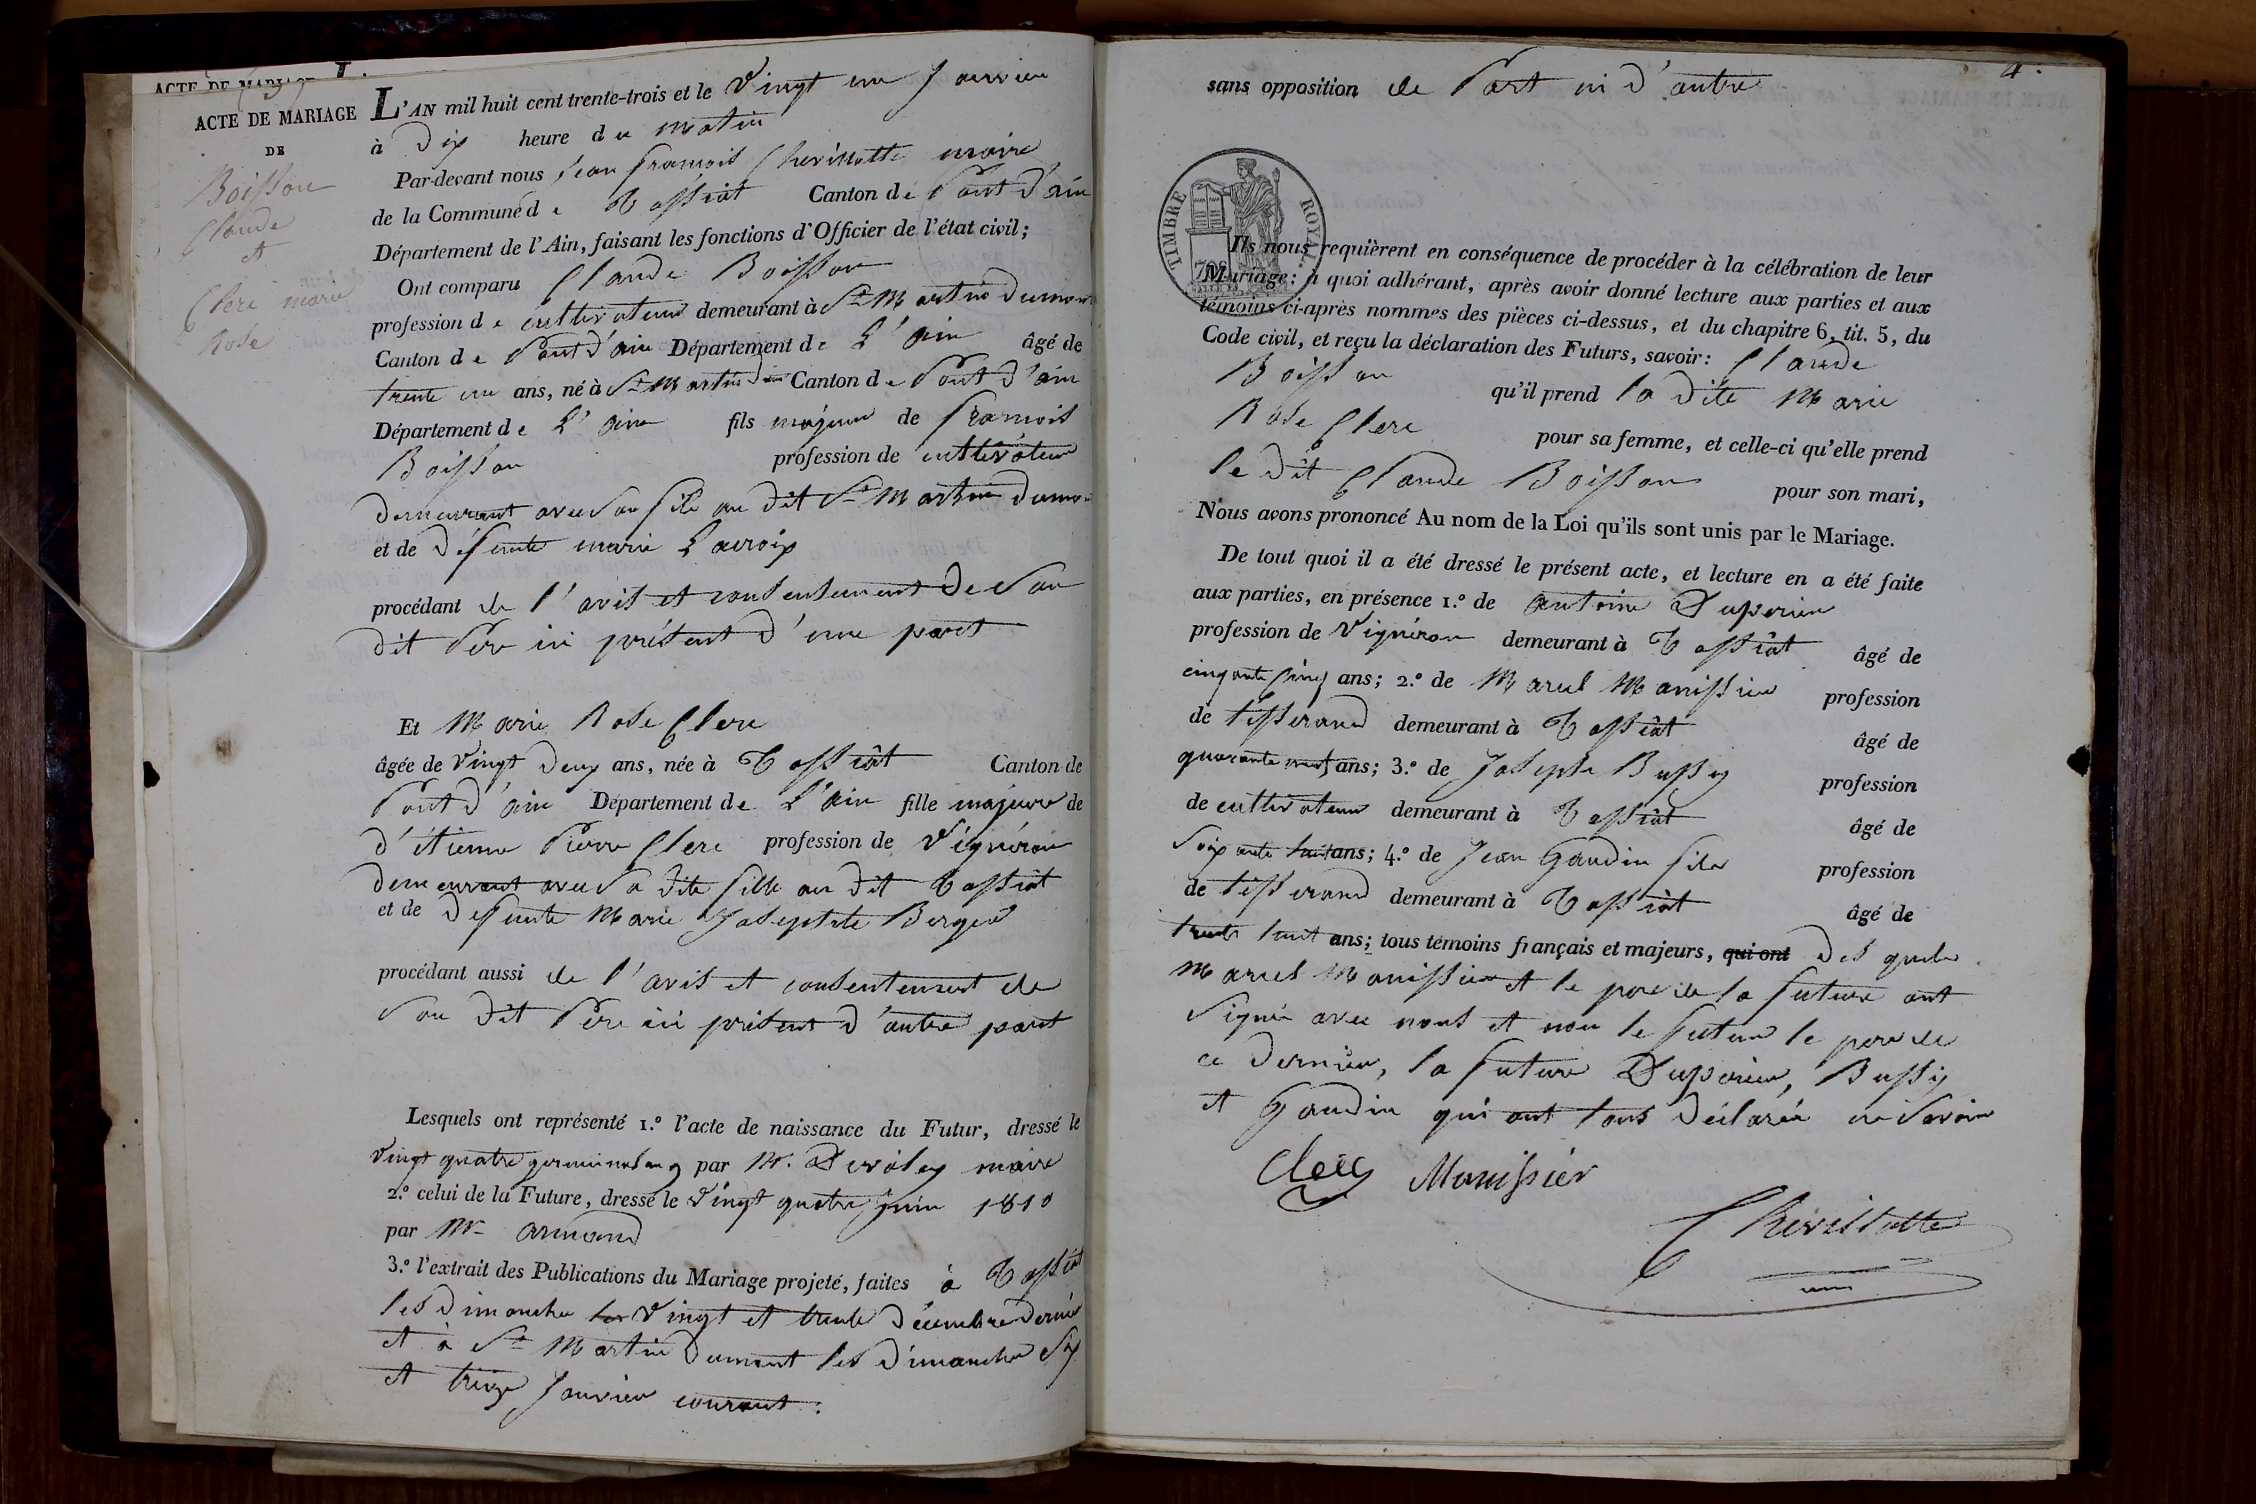 ACTE DE MARIAGE
ACTE DE MARIAGE
DE
Boisson
Claude
et
Clerc marie
Rose
L'AN mil huit cent trente-trois et le Vingt un Janvier
à Dix heure du matin
Par-devant nous Jean françois Chevillotte maire
de la Commune de Tossiat Canton de Pont d'ain
Département de l'Ain, faisant les fonctions d'Officier de l'état civil;
Ont comparu Claude Boisson
profession de cultivateur demeurant à St Martin Dumont
Canton de Pont d'ain Département de L'ain âgé de
trente un ans, né à St Martin Canton de Pont d'ain
Département de L'ain fils majeur de françois
Boisson profession de cultivateur
demeurant avec son fils au dit St Martin dumont
et de Défunte marie Lacroix
procédant de l'avis et consentement De Son
dit Père ici présent d'une part
Et Marie Rose Clerc
âgée de Vingt Deux ans, née à Tossiat Canton de
Pont d'ain Département de L'ain fille majeure de
d'étienne Pierre Clerc profession de Vignéron
demeurant avec Sa dite fille au dit Tossiat
et de Defunte Marie Josephte Berger
procédant aussi de l'avis et consentement de
Son Dit Père ici présent d'autre part
Lesquels ont représenté 1.º l'acte de naissance du Futur, dressé le
Vingt quatre germinal an 9 par Mr. maire
2.º celui de la Future, dressé le Vingt quatre juin 1810
par Mr armand
3.º l'extrait des Publications du Mariage projeté, faites à Tossiat
les Dimanche les Vingt et trente Décembre Dernier
et à St Martin Dumont les Dimanche Six
et treize Janvier courant.
4.
sans opposition de Part ni d'autre
TIMBRE ROYAL
Ils nous requièrent en conséquence de procéder à la célébration de leur
Mariage: à quoi adhérant, après avoir donné lecture aux parties et aux
témoins ci-après nommés des pièces ci-dessus, et du chapitre 6, tit. 5, du
Code civil, et reçu la déclaration des Futurs, savoir: Claude
Boisson qu'il prend la Dite Marie
Rose Clerc pour sa femme, et celle-ci qu'elle prend
le Dit Claude Boisson pour son mari,
Nous avons prononcé Au nom de la Loi qu'ils sont unis par le Mariage.
De tout quoi il a été dressé le présent acte, et lecture en a été faite
aux parties, en présence 1.º de antoine Duperier
profession de Vignéron demeurant à Tossiat âgé de
cinquante Cinq ans; 2.º de Marcel Manissier profession
de tisserand demeurant à Tossiat âgé de
quarante neuf ans; 3.º de Joseph Bussy profession
de cultivateur demeurant à Tossiat âgé de
Soixante huit ans; 4.º de Jean Gaudin fils profession
de tisserand demeurant à Tossiat âgé de
trente huit ans; tous témoins français et majeurs, qui ont Des quels
Marcel Manissier et le père de la future ont
Signé avec nous et non le futur le père de
ce Dernier, la future Duperier, Bussy
et Gaudin qui ont tous Déclarés ne Savoir
Clerc Manissier
Chevillotte